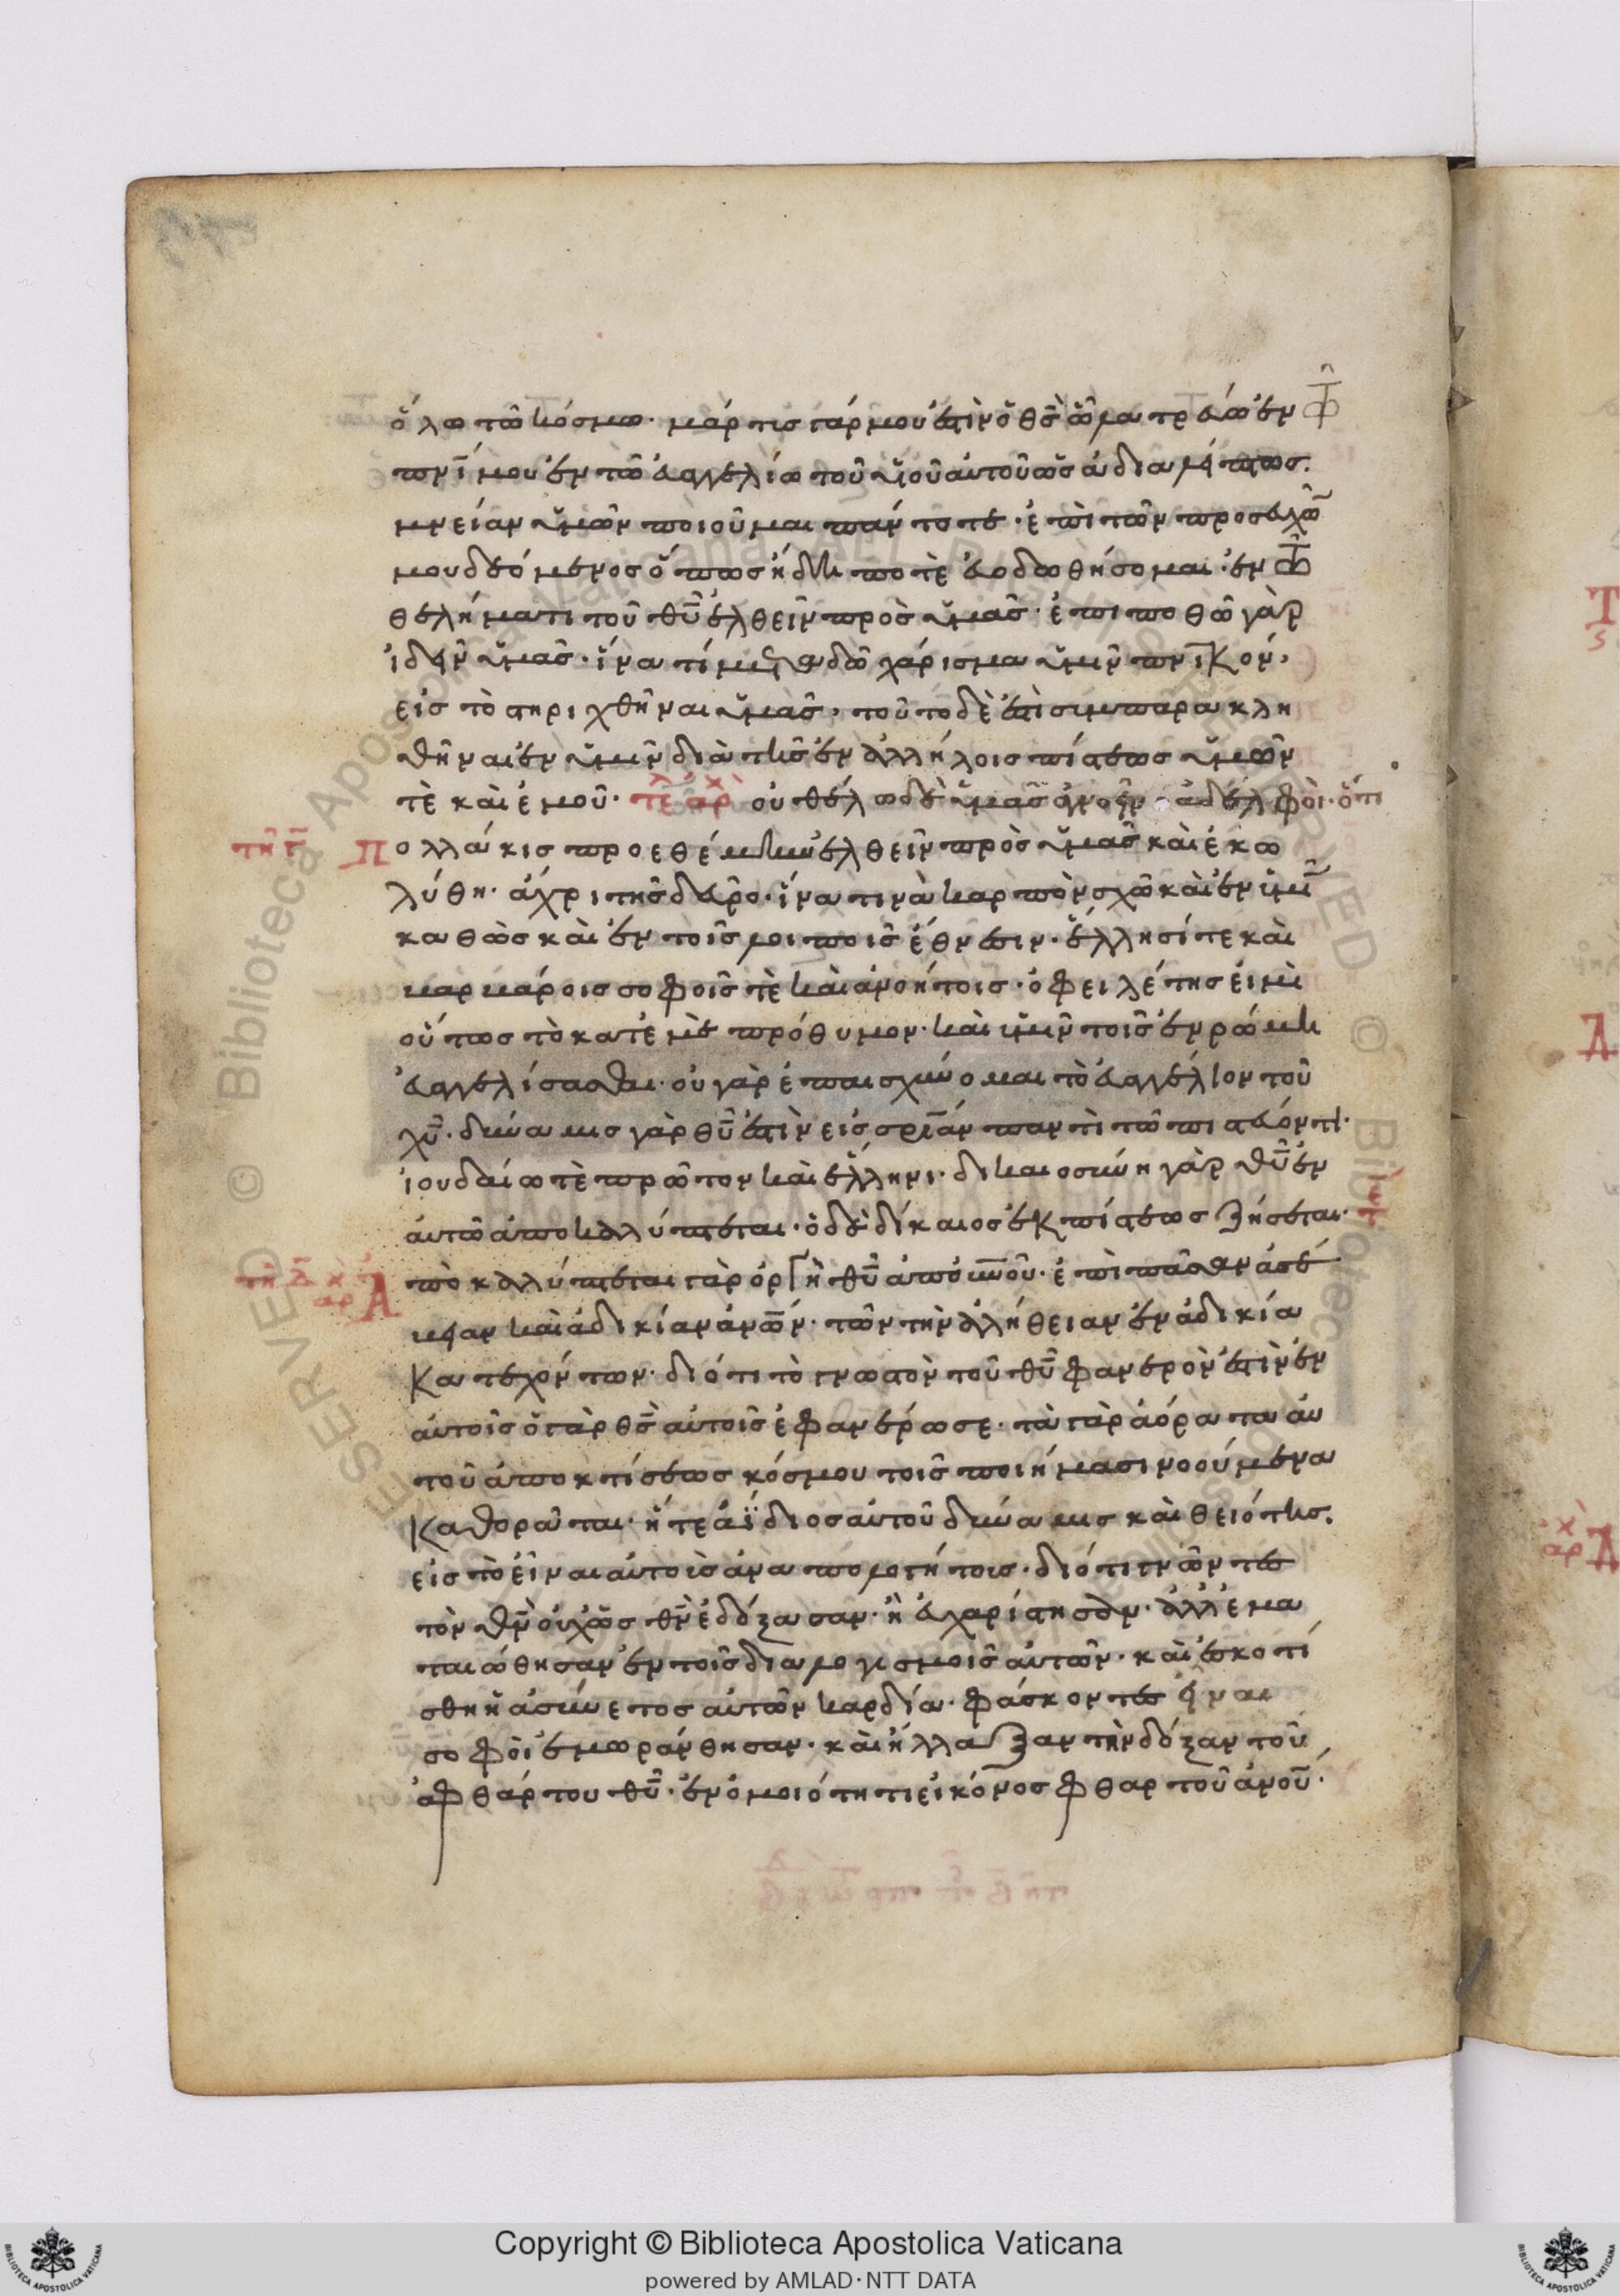 ὅλω τῶ κόσμω· μάρτις γάρ μου ἐστὶν ὁ θς ὧ λατρεύω ἐν τῶ
πνϊ μου ἐν τῶ εὐαγγελίω τοῦ υἱοῦ αὐτοῦ ὡς ἀδιαλείπτως.
μνείαν ὑμῶν ποιοῦμαι πάντοτε· ἐπὶ τῶν προσευχῶ
μου δεόμενος ὅπως ἤδη ποτὲ εὐοδωθήσομαι· ἐν τῶ
θελήματι τοῦ θῦ ἐλθεῖν πρὸς ὑμᾶς· ἐπιποθῶ γὰρ
ἰδεῖν ὑμᾶς· ἵνα τί μεταδῶ χάρισμα ὑμῖν πνϊκόν,
εἰς τὸ στηριχθῆναι ὑμᾶς, τοῦτο δὲ ἐστὶ συμπαρακλη
θῆναι ἐν ὑμῖν διὰ τῆς ἐν ἀλλήλοις πίστεως ὑμῶν
τὲ καὶ ἐμοῦ· τε αρχ οὐ θέλω δὲ ὑμᾶς ἀγνοεῖν ἀδελφοὶ· ὅτι
τη π Πολλάκις προεθέμην ἐλθεῖν πρὸς ὑμᾶς καὶ ἐκω
λύθη· ἄχρι τῆς δεῦρο· ἵνα τινὰ καρπὸν σχῶ καὶ ἐν ὑμῖ
καθὼς καὶ ἐν τοῖς λοιποῖς ἔθνεσιν· ἕλλησί τε καὶ
βαρβάροις σοφοῖς τὲ καὶ ἀνοήτοις· ὀφειλέτης εἰμὶ
οὕτως τὸ κατ' ἐμὲ πρόθυμον· καὶ ὑμῖν τοῖς ἐν ρώμη
εὐαγγελίσασθαι· οὐ γὰρ ἐπαισχύνομαι τὸ εὐαγγέλιον τοῦ
χῦ· δύναμις γὰρ θῦ ἐστὶν εἰς σρίαν παντὶ τῶ πιστεύοντι·
ἰουδαίω τὲ πρῶτον καὶ ἕλληνι· δικαιοσύνη γὰρ θῦ ἐν
αὐτῶ ἀποκαλύπτεται· ὁ δὲ δίκαιος ἐκ πίστεως ζήσεται·
Ἀποκαλύπτεται γὰρ ὀργὴ θῦ ἀπ' οὐνοῦ· ἐπὶ πᾶσαν ἀσέ
βειαν καὶ ἀδικίαν ἀνῶν· τῶν τὴν ἀλήθειαν ἐν ἀδικία
κατεχόντων· διότι τὸ γνωστὸν τοῦ θῦ φανερὸν ἐστὶν ἐν
αὐτοῖς ὁ γὰρ θς αὐτοῖς ἐφανέρωσε· τὰ γὰρ ἀόρατα αὐ
τοῦ ἀπὸ κτίσεως κόσμου τοῖς ποιήμασι νοούμενα
καθορᾶται· ἥ τε ἀΐδιος αὐτοῦ δύναμις καὶ θειότης.
εἰς τὸ εἶναι αὐτοὺς ἀναπολογήτοις· διότι γνῶντες
τὸν θν οὐχ ὡς θν ἐδόξασαν· ἢ εὐχαρίστησαν· ἀλλ' ἐμα
ταιώθησαν ἐν τοῖς διαλογισμοῖς αὐτῶν· καὶ ἐσκοτί
σθη ἡ ἀσύνετος αὐτῶν καρδία· φάσκοντες εἶναι
σοφοὶ ἐμωράνθησαν· καὶ ἤλλαξαν τὴν δόξαν τοῦ
ἀφθάρτου θῦ· ἐν ὁμοιότητι εἰκόνος φθαρτοῦ ἀνοῦ·
Copyright © Biblioteca Apostolica Vaticana
powered by AMLAD·NTT DATA